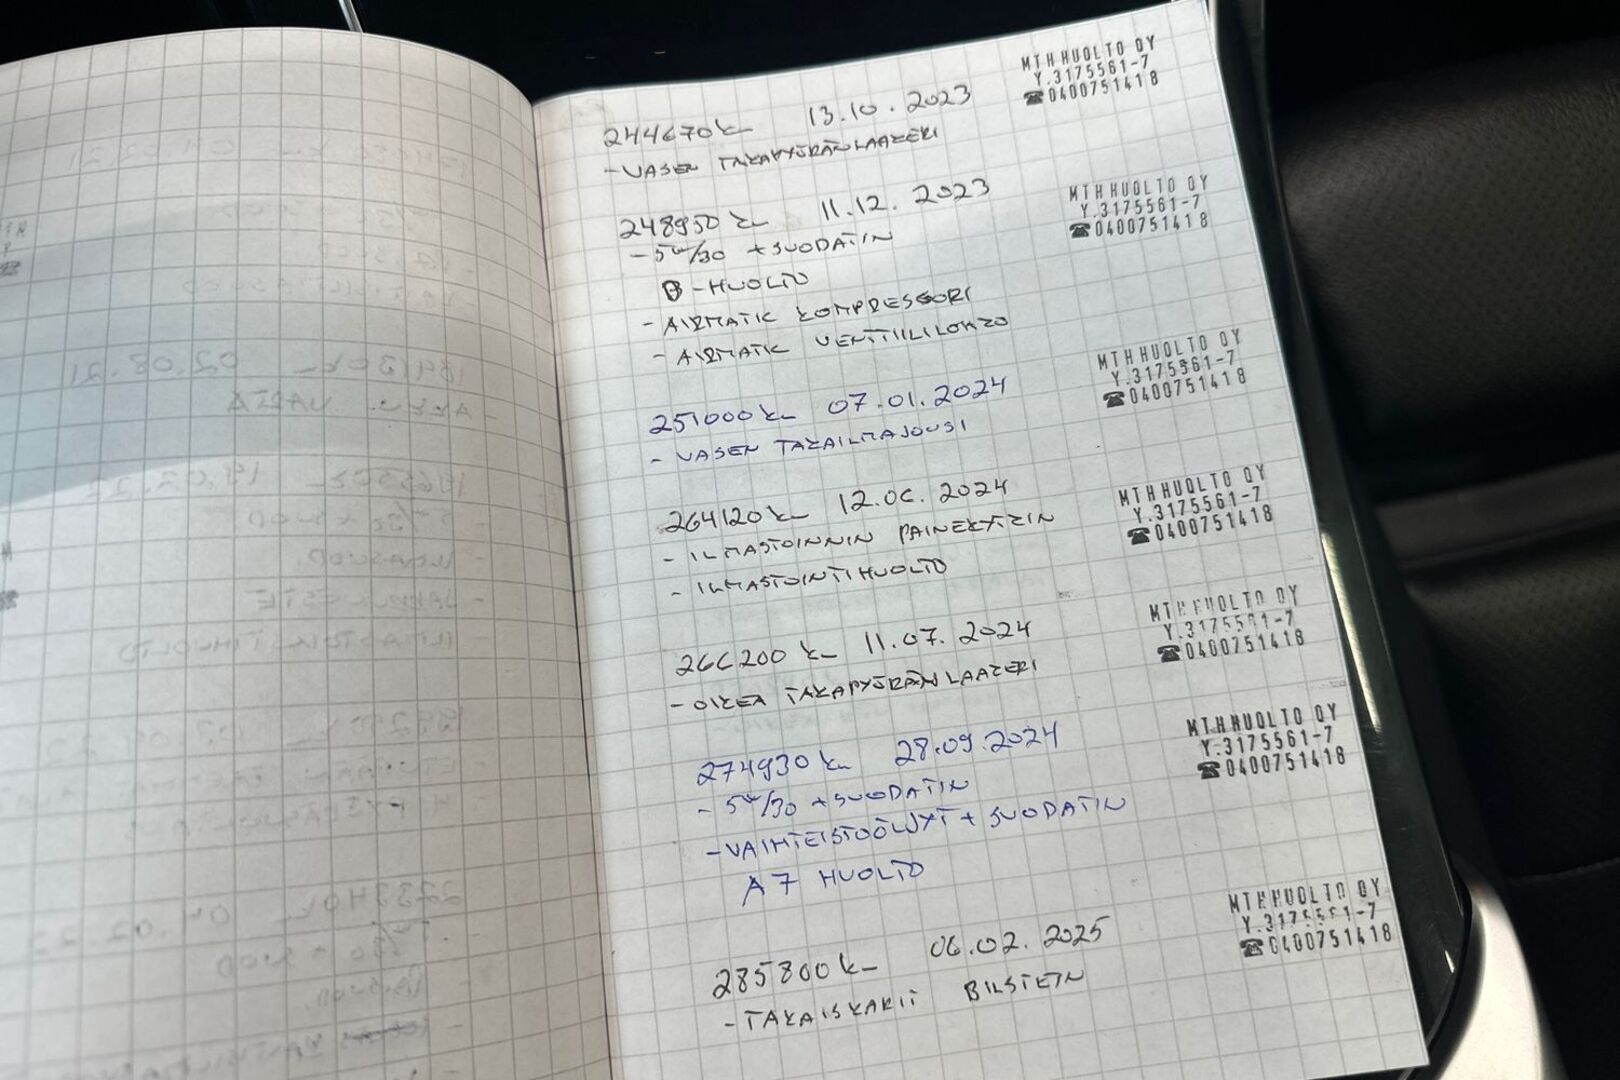 MTH HUOLTO OY
Y.3175561-7
☎0400751418
244670km 13.10.2023
- VASEN TAKAPYÖRÄN LAAKERI
MTH HUOLTO OY
Y.3175561-7
☎0400751418
248950 km 11.12.2023
- 5w/30 + SUODATIN
B - HUOLTO
- AIRMATIC KOMPRESSORI
- AIRMATIC VENTTIILILOHKO
MTH HUOLTO OY
Y.3175561-7
☎0400751418
251000km 07.01.2024
- VASEN TAKAILMAJOUSI
MTH HUOLTO OY
Y.3175561-7
☎0400751418
264120km 12.06.2024
- ILMASTOINNIN PAINEKYTKIN
- ILMASTOINTIHUOLTO
MTH HUOLTO OY
Y.3175561-7
☎0400751418
266200 km 11.07.2024
- OIKEA TAKAPYÖRÄN LAAKERI
MTH HUOLTO OY
Y.3175561-7
☎0400751418
274930 km 28.09.2024
- 5w/30 + SUODATIN
- VAIHTEISTOÖLJYT + SUODATIN
A7 HUOLTO
MTH HUOLTO OY
Y.3175561-7
☎0400751418
285800km 06.02.2025
- TAKAISKARIT BILSTEIN